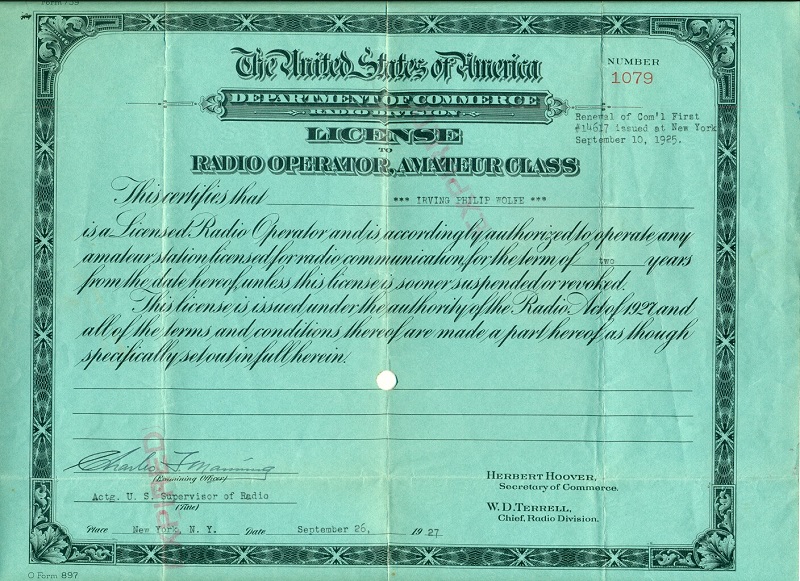 Form 759
The United States of America
NUMBER
1079
DEPARTMENT OF COMMERCE
RADIO DIVISION
LICENSE
TO
RADIO OPERATOR, AMATEUR CLASS
Renewal of Com'l First
#14617 issued at New York
September 10, 1925.
This certifies that *** IRVING PHILIP WOLFE ***
is a Licensed Radio Operator and is accordingly authorized to operate any
amateur station licensed for radio communication, for the term of two years
from the date hereof, unless this license is sooner suspended or revoked.
This license is issued under the authority of the Radio Act of 1927 and
all of the terms and conditions thereof are made a part hereof as though
specifically set out in full herein.
Charles J Manning
(Examining Officer)
Actg. U. S. Supervisor of Radio
(Title)
Place New York, N. Y. Date September 26, 1927
HERBERT HOOVER,
Secretary of Commerce.
W. D. TERRELL,
Chief, Radio Division.
Form 897